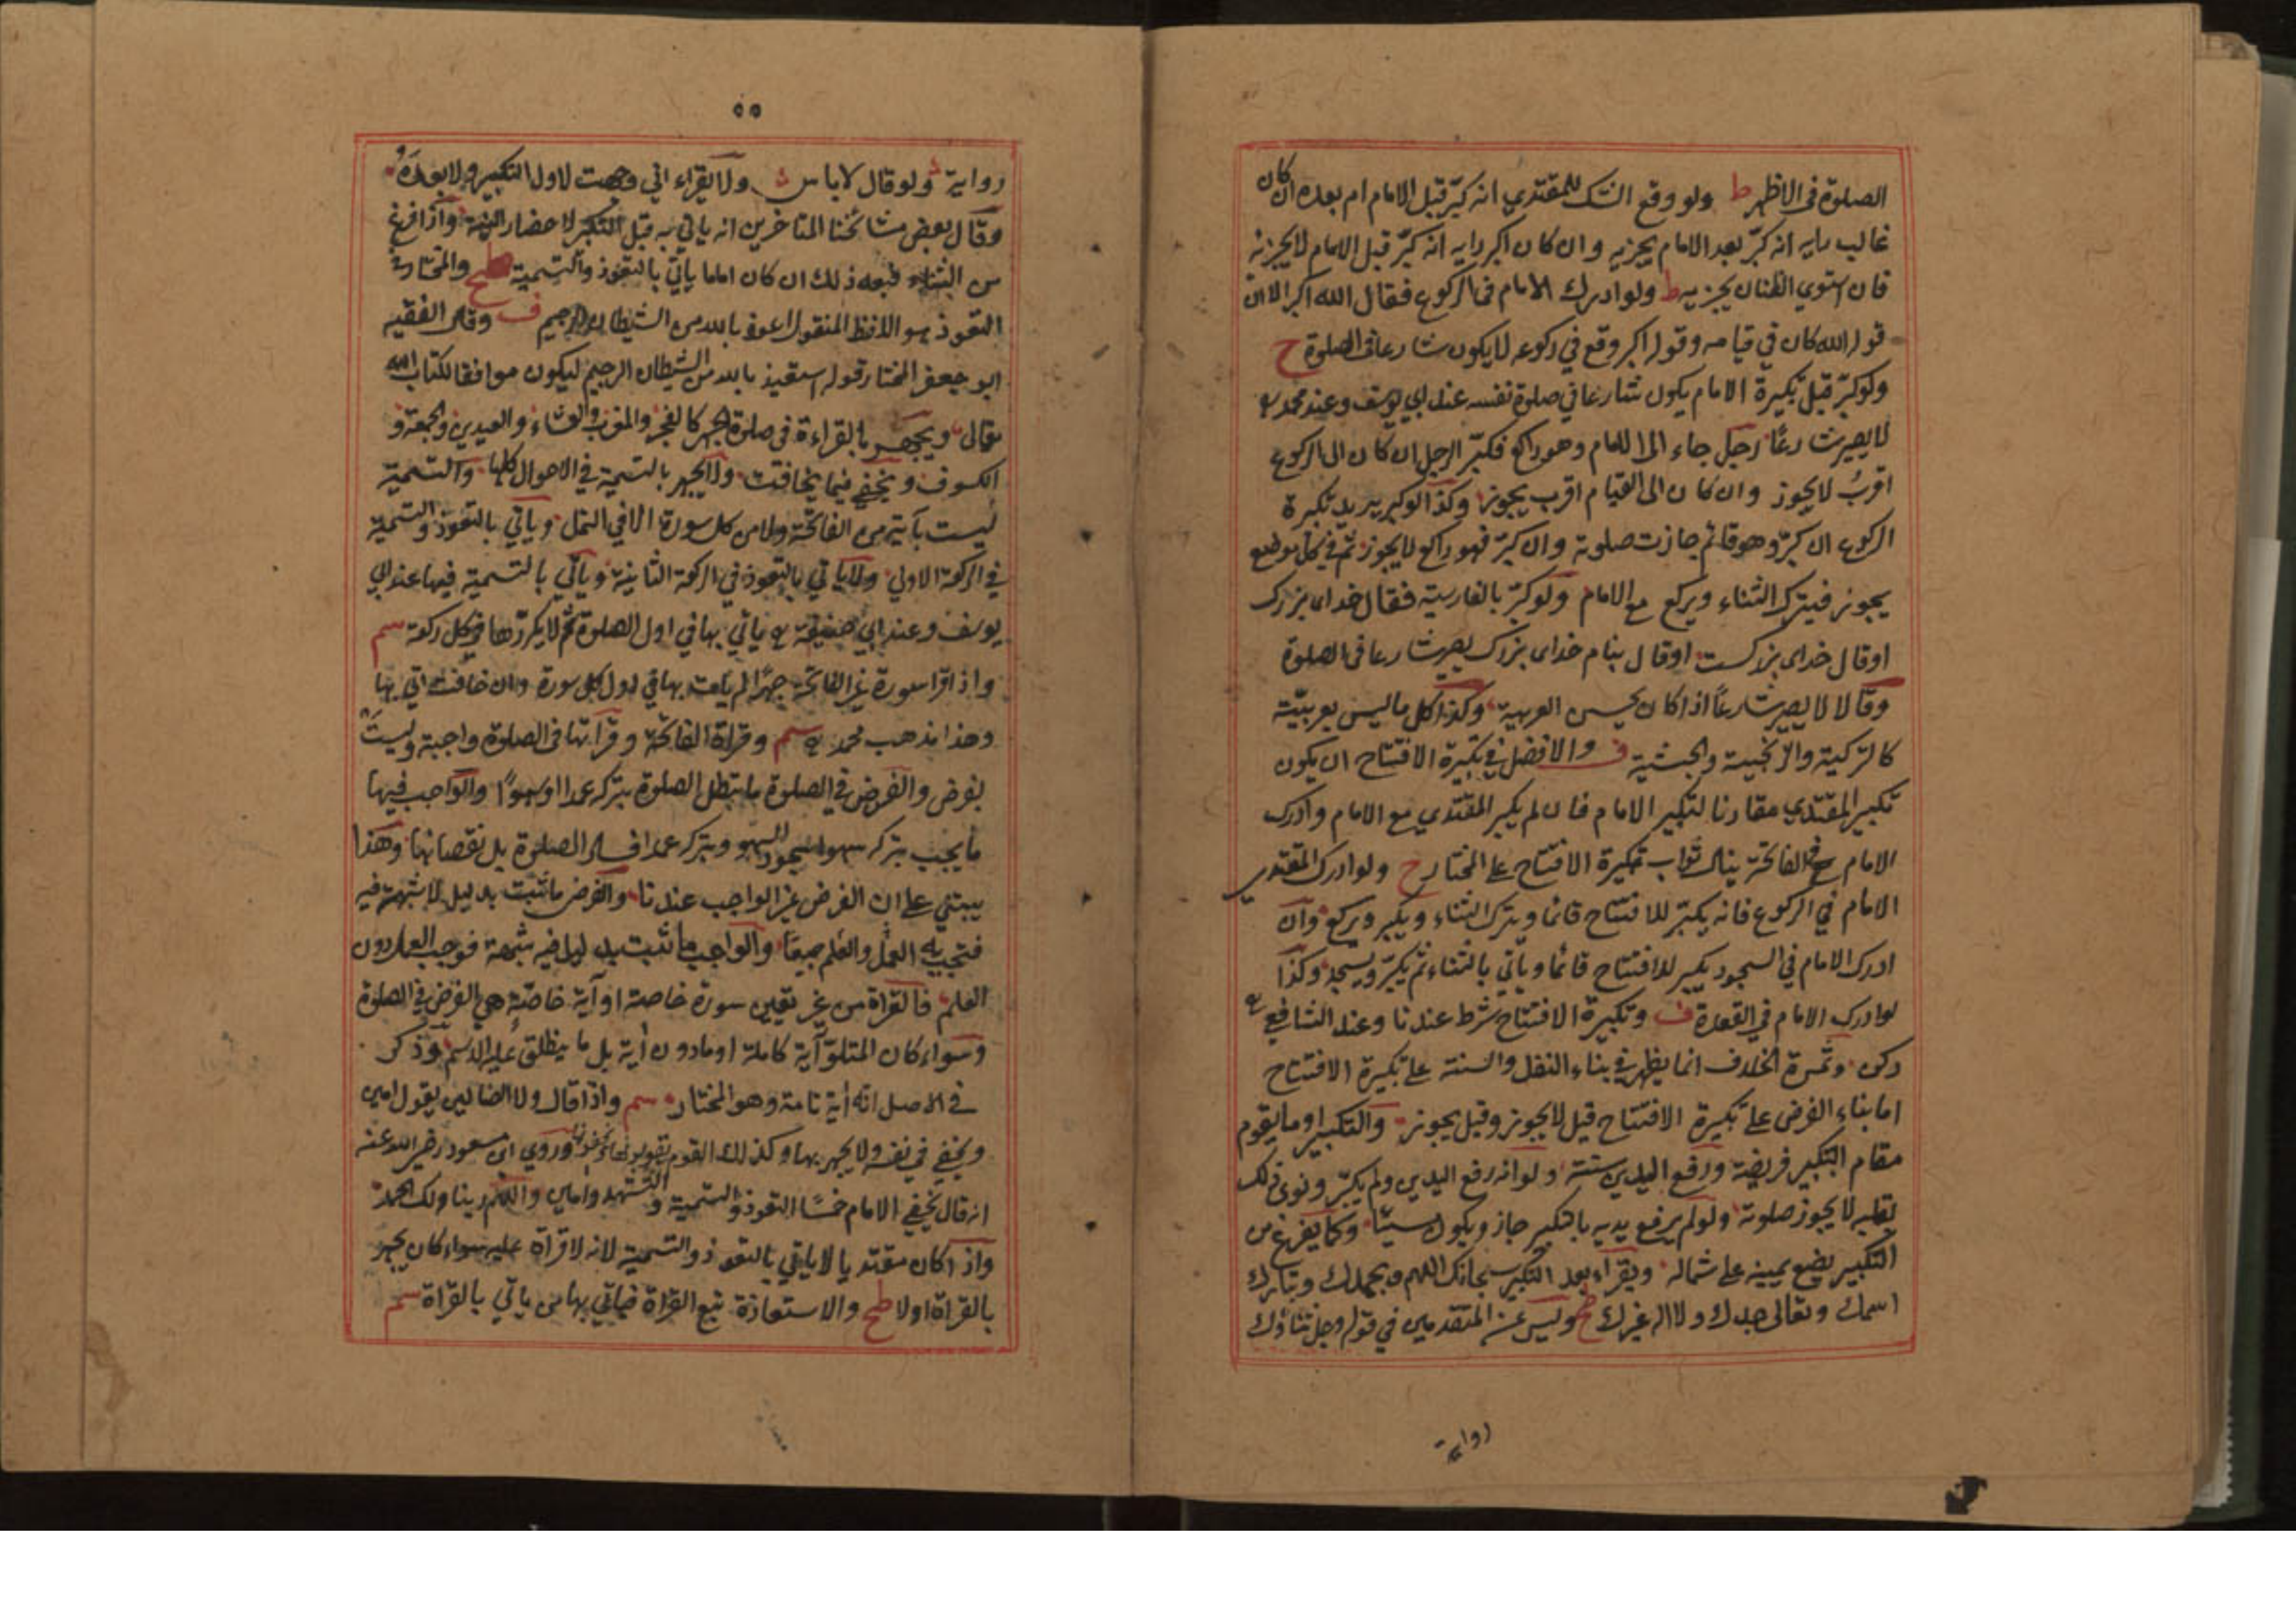 الصلوة فى الاظهر ط ولو وقع الشك للمقتدي انه كبّر قبل الامام ام بعده ان كان
غالب رايه انه كبّر بعد الامام يجزيه وان كان اكبر رايه انه كبّر قبل الامام لا يجزيه
فان استوي الظنان يجزيه ط ولو ادرك الامام فى الركوع فقال الله اكبر الا ان
قوله الله كان في قيامه وقوله اكبر وقع في ركوعه لا يكون شارعا فى الصلوة ح
ولو كبّر قبل تكبيرة الامام يكون شارعا في صلوة نفسه عند ابي يوسف وعند محمد
لا يصير شارعًا رجل جاء الى الامام وهو راكع فكبّر الرجل ان كان الى الركوع
اقربُ لا يجوز وان كان الى القيام اقرب يجوز وكذا لو كبر يريد تكبيرة
الركوع ان كبّر وهو قائم جازت صلوته وان كبّر فهو راكع لا يجوز ثم في كل موضع
يجوز فيترك الثناء ويركع مع الامام ولو كبّر بالفارسية فقال خداى بزرك
او قال خداى بزركست او قال بنام خداى بزرك يصير شارعا فى الصلوة
وقالا لا يصير شارعاً اذا كان يحسن العربية وكذا كل ما ليس بعربيّة
كالتركية والزنجية والحبشية ف والافضل في تكبيرة الافتتاح ان يكون
تكبير المقتدي مقارنا لتكبير الامام فان لم يكبر المقتدي مع الامام وادرك
الامام في الفاتحة ينال ثواب تكبيرة الافتتاح على المختار ح ولو ادرك المقتدي
الامام في الركوع فانه يكبّر للافتتاح قائما ويترك الثناء ويكبر ويركع وان
ادرك الامام في السجود يكبر للافتتاح قائما وياتي بالثناء ثم يكبّر ويسجد وكذا
لو ادرك الامام في القعدة ف وتكبيرة الافتتاح شرط عندنا وعند الشافعي
ركن وثمرة الخلاف انما يظهر في بناء النفل والسنة على تكبيرة الافتتاح
اما بناء الفرض على تكبيرة الافتتاح قيل لا يجوز وقيل يجوز والتكبير او ما يقوم
مقام التكبير فريضة ورفع اليدين سنته ولو انه رفع اليدين ولم يكبّر ونوى ذلك
بقلبه لا يجوز صلوته ولو لم يرفع يديه بالتكبير جاز ويكون سيئًا وكما يفرغ من
التكبير يضع يمينه على شماله ويقراء بعد التكبير سبحانك اللهم وبحمدك وتبارك
اسمك وتعالى جدك ولا اله غيرك وليس عن المتقدمين في قوله وجل ثناؤك
رواية
٥٥
رواية ولو قال لا باس ولا يقراء اني وجهت لاول التكبير ولا بعده
وقال بعض مشائخنا المتاخرين انه ياتي به قبل التكبير لاحضار النية واذا فرغ
من الثناء فبعد ذلك ان كان اماما ياتي بالتعوذ والتسمية والمختار في
التعوذ هو اللفظ المنقول اعوذ بالله من الشيطان الرجيم ف وقال الفقيه
ابو جعفر المختار قوله استعيذ بالله من الشيطان الرجيم ليكون موافقا لكتاب الله
تعالى ويجهر بالقراءة فى صلوة الجهر كالفجر والمغرب والعشاء والعيدين والجمعة و
الكسوف ويخفي فيما يخافت ولا يجهر بالتسمية في الاحوال كلها والتسمية
ليست بآية من الفاتحة ولا من كل سورة الا في النمل وياتي بالتعوذ والتسمية
في الركعة الاولي ولا ياتي بالتعوذ في الركعة الثانية وياتي بالتسمية فيها عند ابي
يوسف وعند ابي حنيفة ياتي بها في اول الصلوة ثم لا يكررها في كل ركعة سم
واذا قرا سورة غير الفاتحة جهرًا لم يات بها في اول كل سورة وان خافت اتي بها
وهذا مذهب محمد سم وقراة الفاتحة وقرأتها فى الصلوة واجبة وليست
بفرض والفرض في الصلوة ما تبطل الصلوة بتركه عمدا او سهوًا والواجب فيها
ما يجب بتركه سهوا سجود السهو وبتركه عمدا فساد الصلوة بل نقصانها وهذا
يبتني على ان الفرض غير الواجب عندنا والفرض ما ثبت بدليل لا شبهة فيه
فتجب به العمل والعلم جميعًا والواجب ما ثبت بدليل فيه شبهة فوجب العمل دون
العلم فالقراة من غير تعيين سورة خاصة او آية خاصّة هي الفرض في الصلوة
وسواء كان المتلوّ آية كاملة او ما دون أية بل ما ينطلق عليه الاسم وذكر
في الاصل انه أية تامة وهو المختار سم واذا قال ولا الضالين يقول امين
ويخفي في نفسه ولا يجهر بها وكذلك القوم وروي ابن مسعود رضي الله عنه
انه قال يخفي الامام خمسًا التعوذ والتسمية والتشهد وامين واللهم ربنا ولك الحمد
واذا كان مقتديا لا ياتي بالتعوذ والتسمية لانه لا قراة عليه سواء كان يجهر
بالقراة او لا طح والاستعاذة تبع القراة فياتي بها من ياتي بالقراة سم